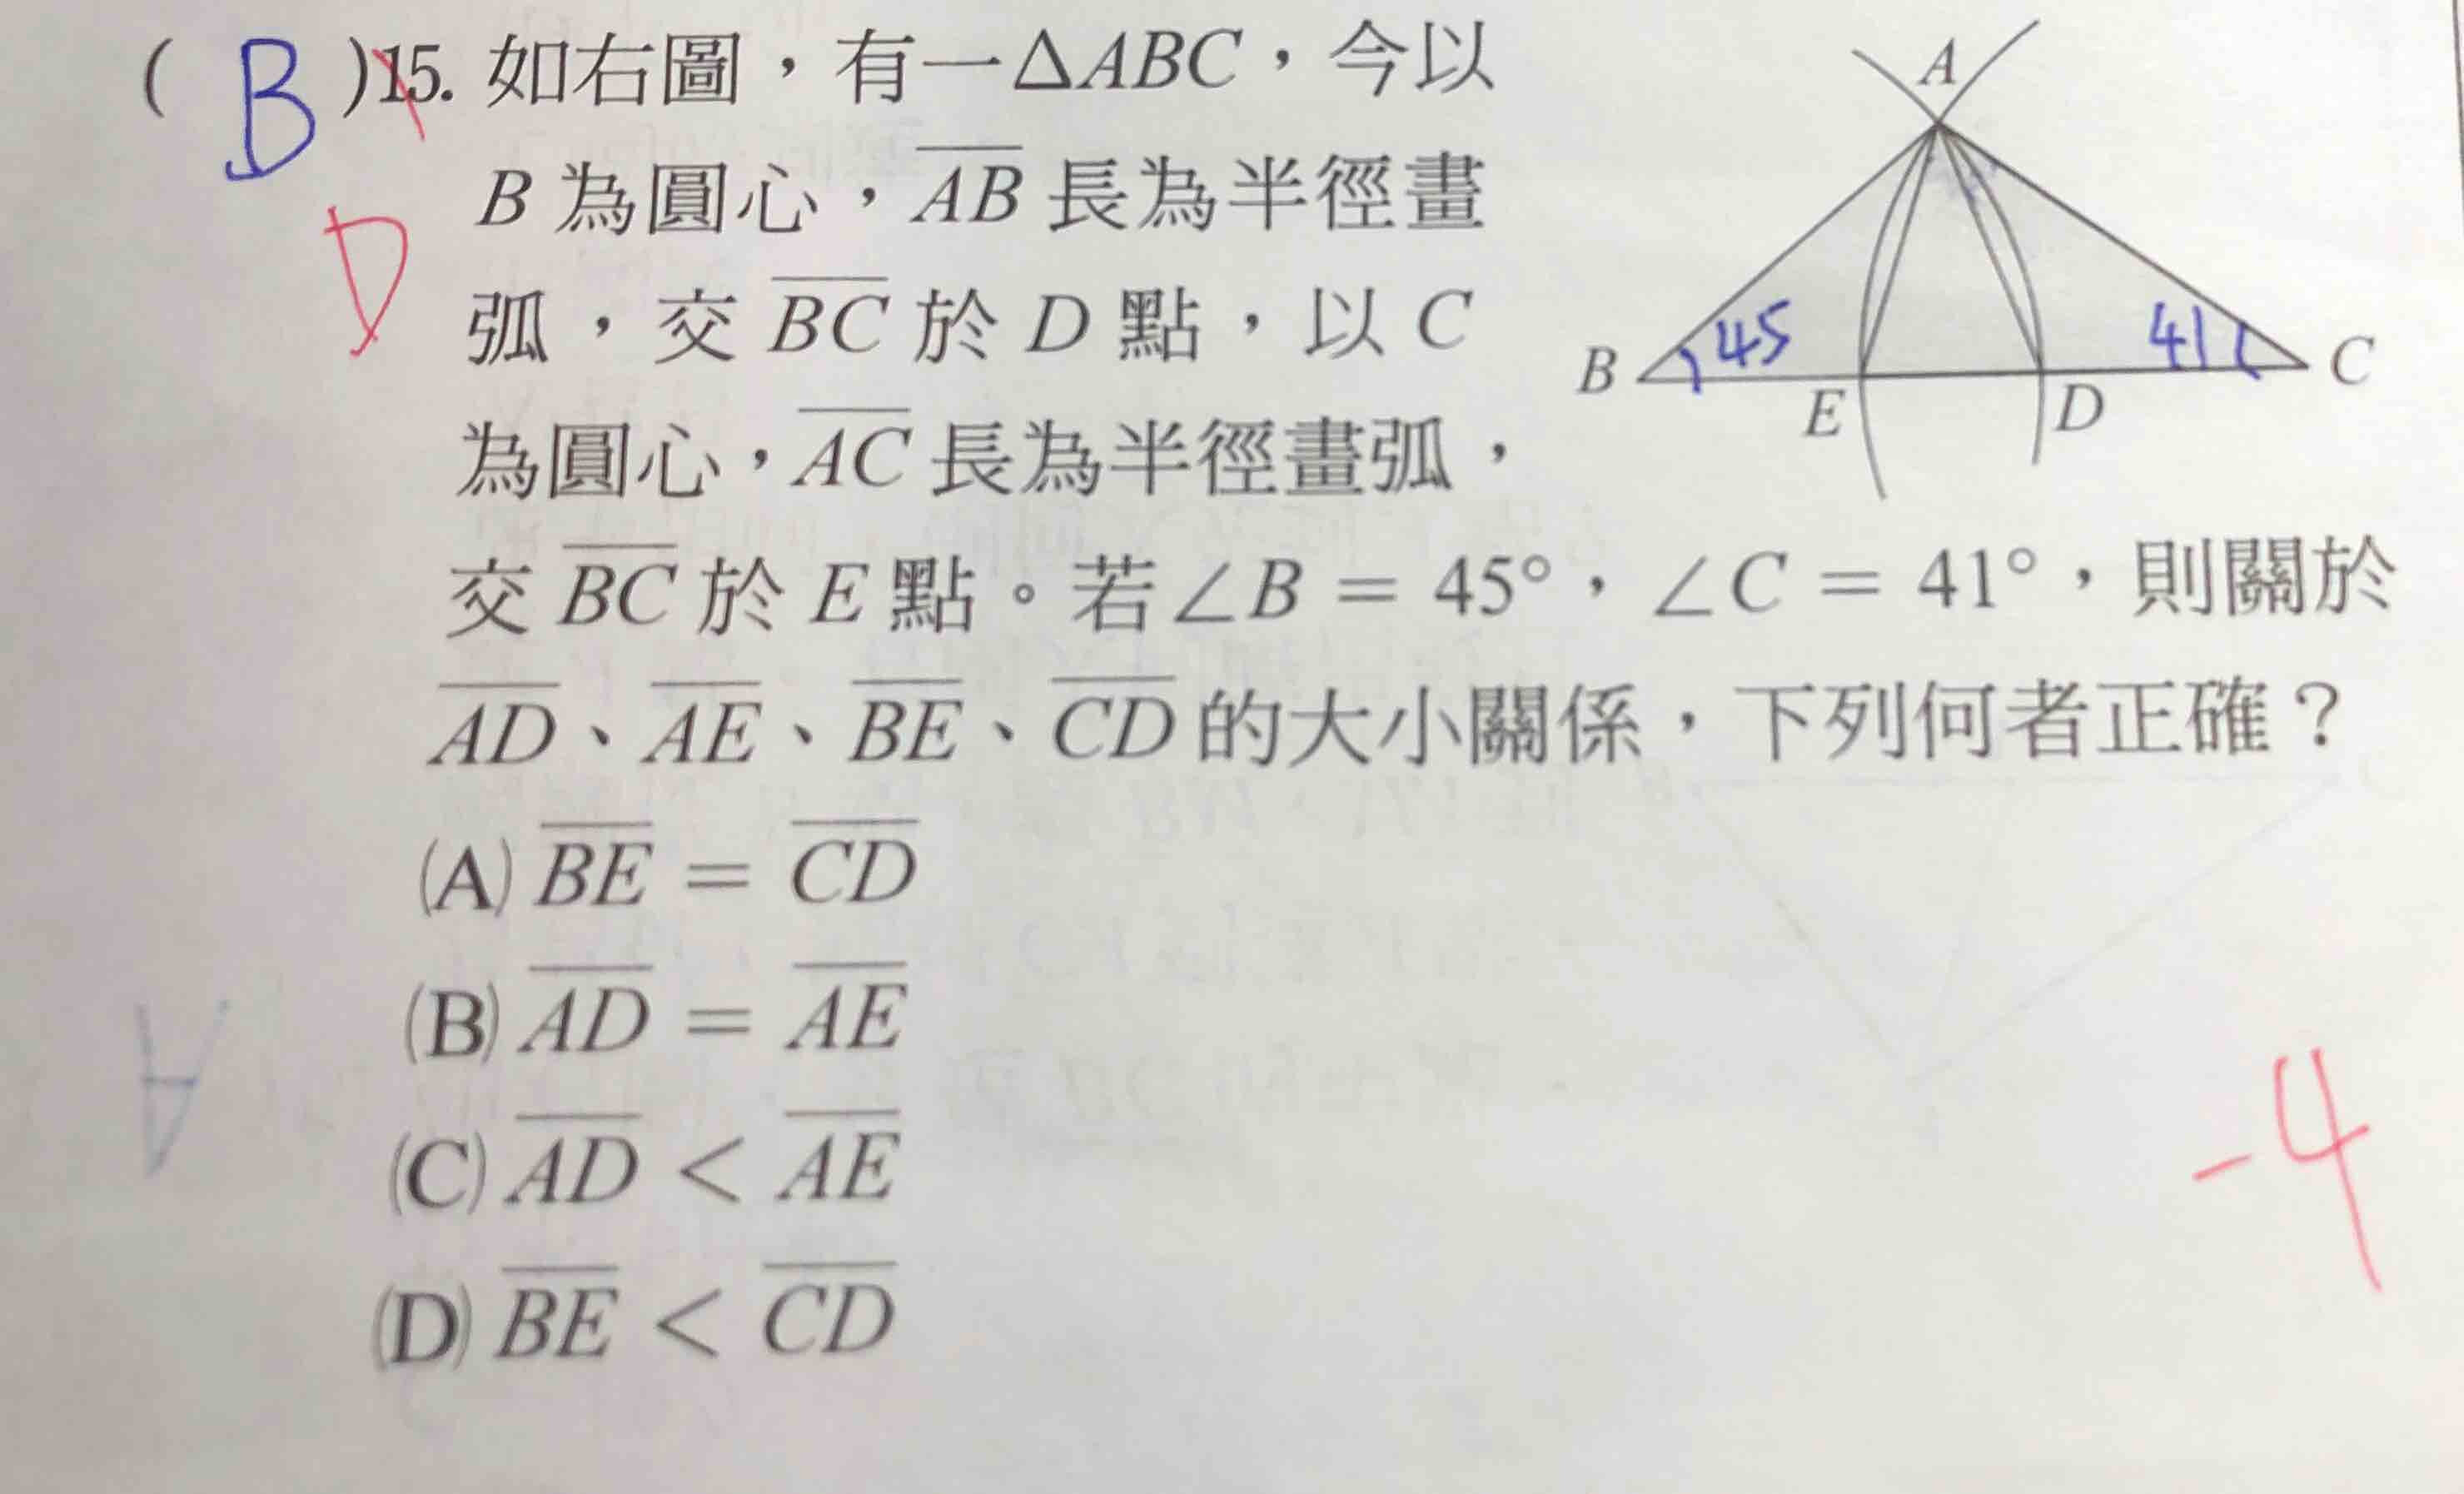 ( B )15. 如右圖，有一△ABC，今以
B 為圓心，AB 長為半徑畫
D
弧，交 BC 於 D 點，以 C
為圓心，AC 長為半徑畫弧，
交 BC 於 E 點。若∠B = 45°，∠C = 41°，則關於
AD、AE、BE、CD 的大小關係，下列何者正確？
(A) BE = CD
(B) AD = AE
(C) AD < AE
(D) BE < CD
A
B
45
41
C
E
D
-4